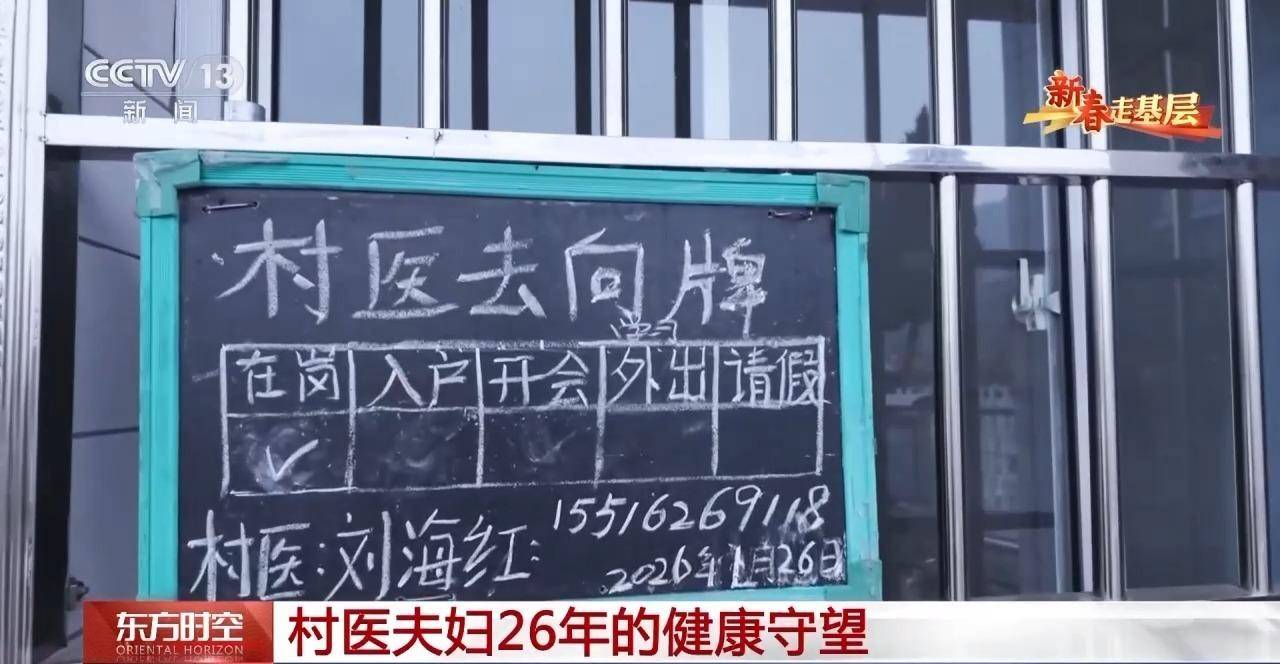 CCTV 13
新闻
新春走基层
村医去向牌
学习
在岗 入户 开会 外出 请假
✓
村医:刘海红: 15516269118
2026年1月26日
东方时空 村医夫妇26年的健康守望
ORIENTAL HORIZON